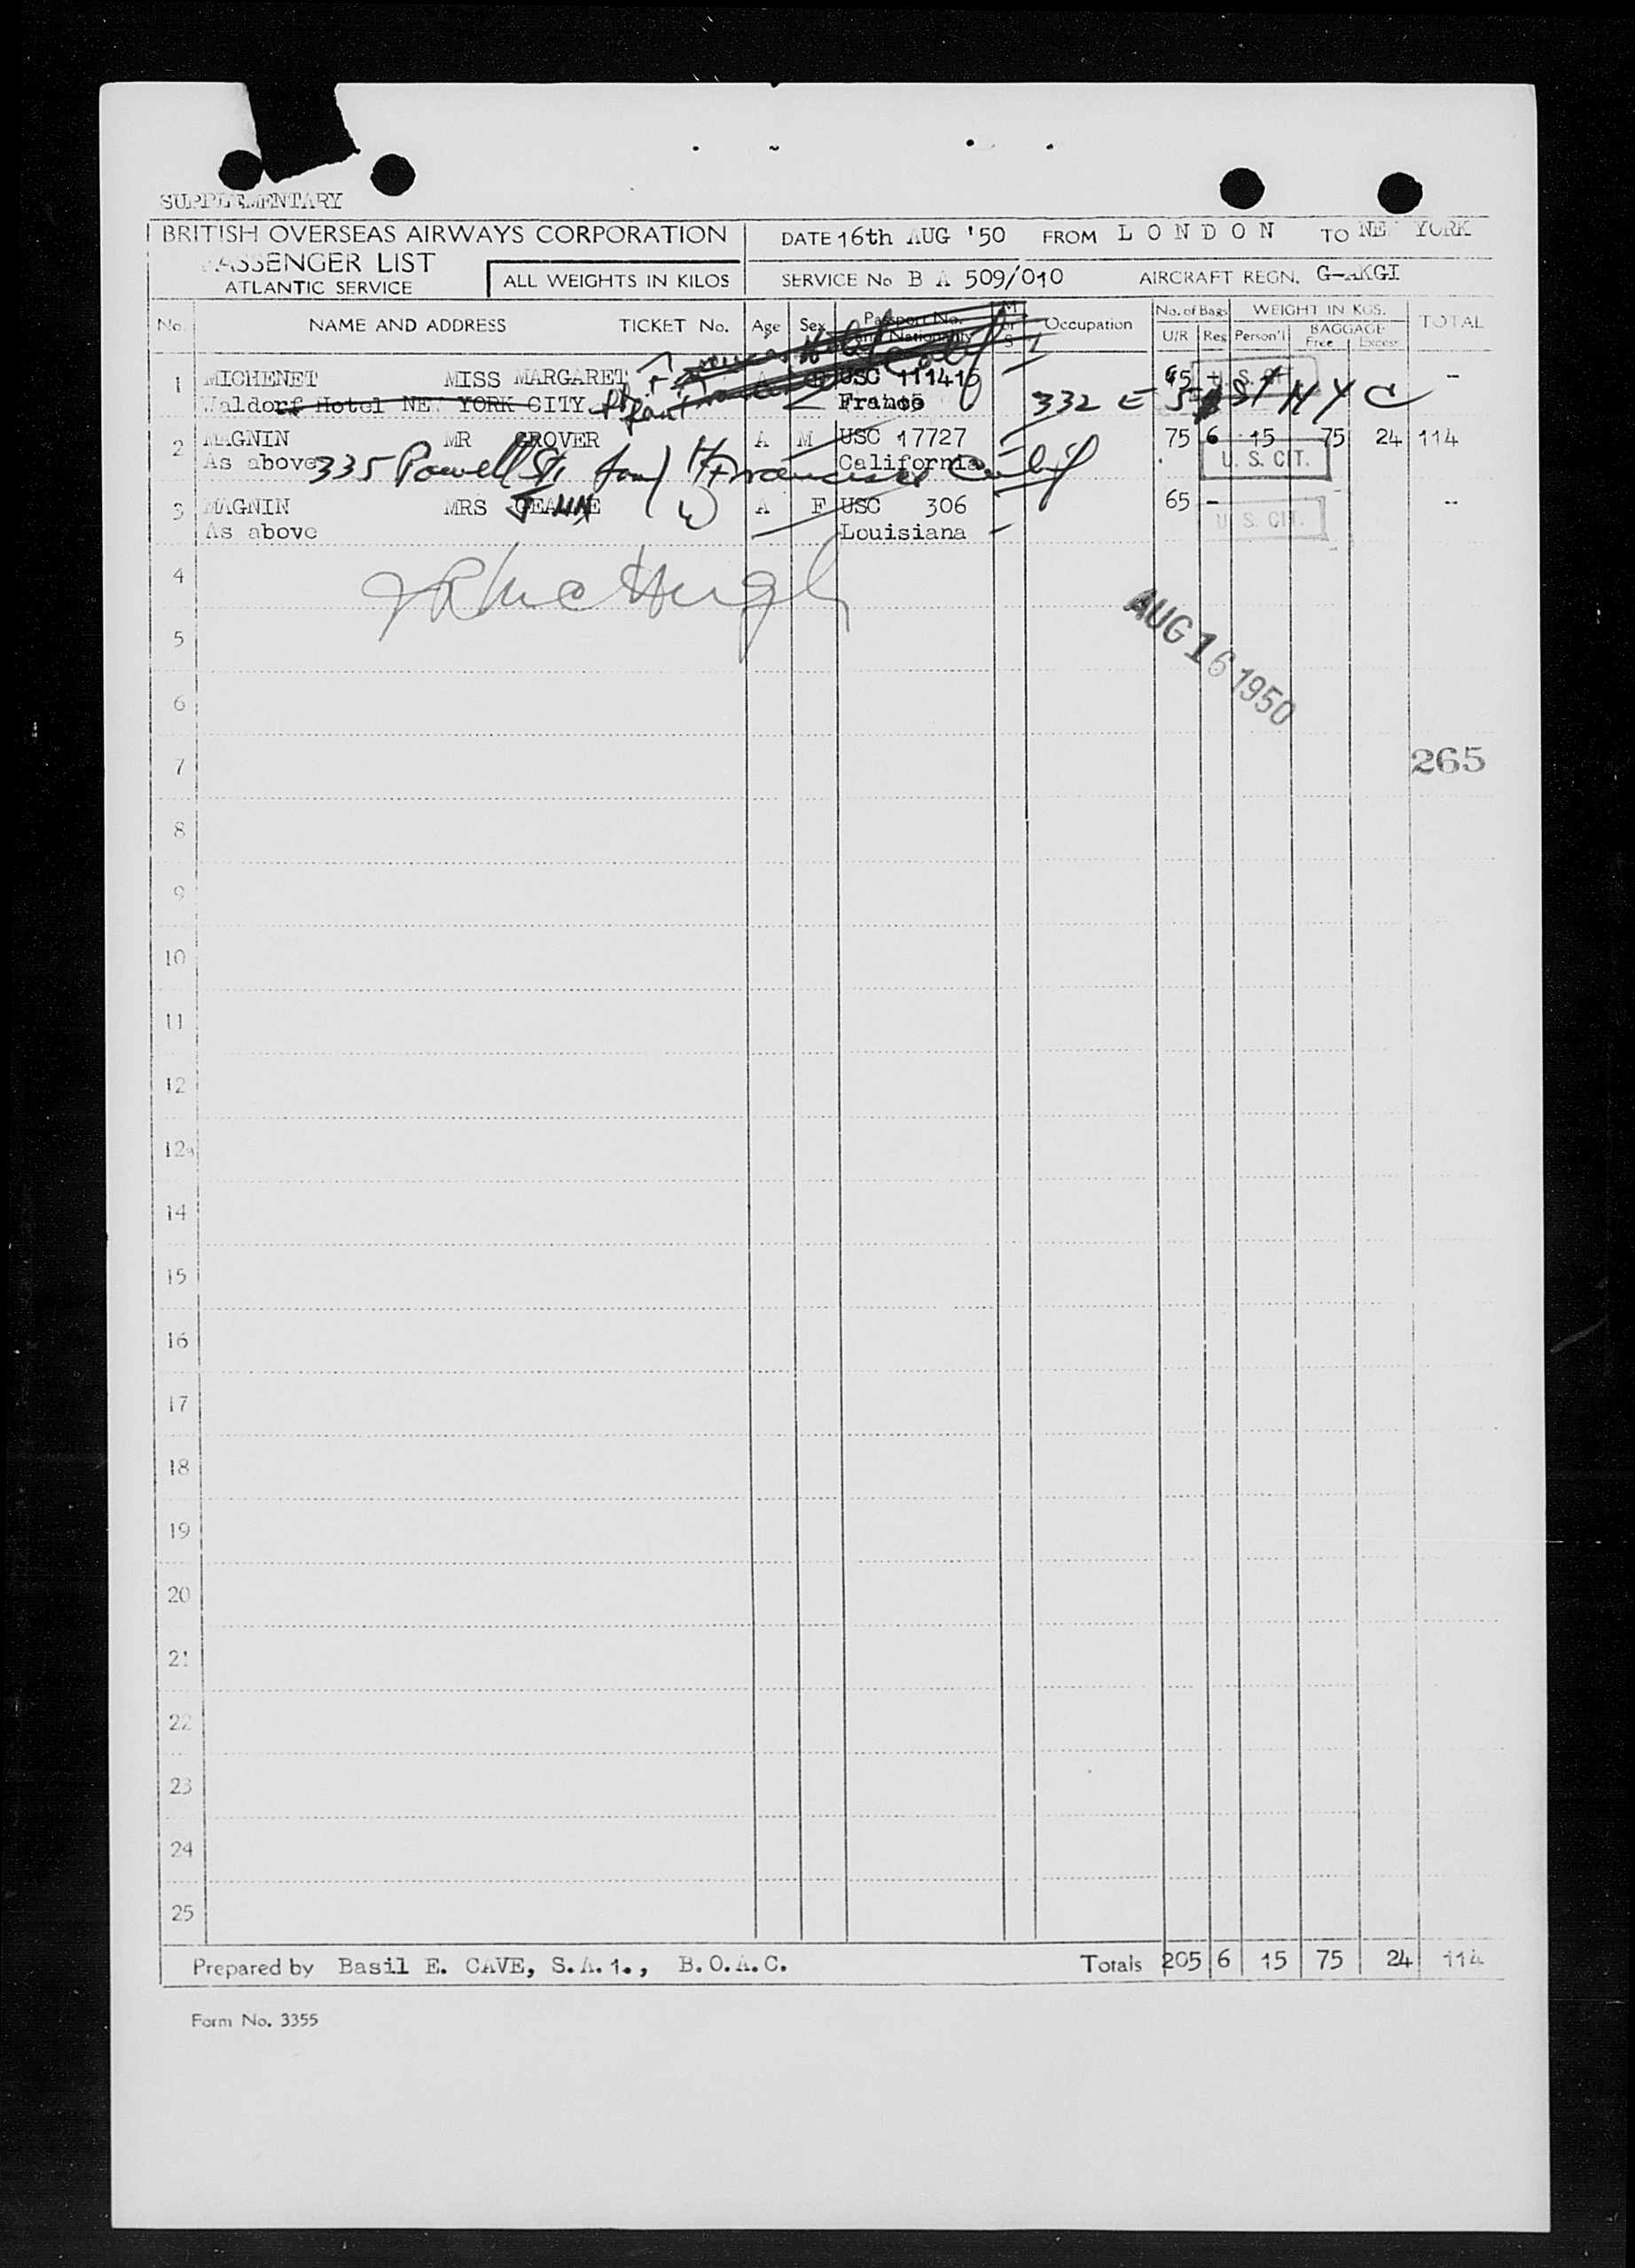 SUPPLEMENTARY
BRITISH OVERSEAS AIRWAYS CORPORATION
PASSENGER LIST
ATLANTIC SERVICE
ALL WEIGHTS IN KILOS
DATE 16th AUG '50 FROM L O N D O N TO NE YORK
SERVICE No B A 509/010 AIRCRAFT REGN. G-AKGI
No. NAME AND ADDRESS TICKET No. Age Sex Passport No. and Nationality M or S Occupation No. of Bags U/R Reg WEIGHT IN KGS. Person'l BAGGAGE Free Excess TOTAL
1 MICHENET MISS MARGARET A USC 111415 65 U.S. CIT. -
Waldorf Hotel NEW YORK CITY France 332 E ST N Y C
2 MAGNIN MR GROVER A M USC 17727 75 6 15 75 24 114
As above 335 Powell St Francisco Calif California U. S. CIT.
3 MAGNIN MRS JEANNE (W) A F USC 306 65 - --
As above Louisiana U. S. CIT.
4
5
AUG 16 1950
6
7 265
8
9
10
11
12
12a
14
15
16
17
18
19
20
21
22
23
24
25
Prepared by Basil E. CAVE, S.A.1., B.O.A.C. Totals 205 6 15 75 24 114
Form No. 3355